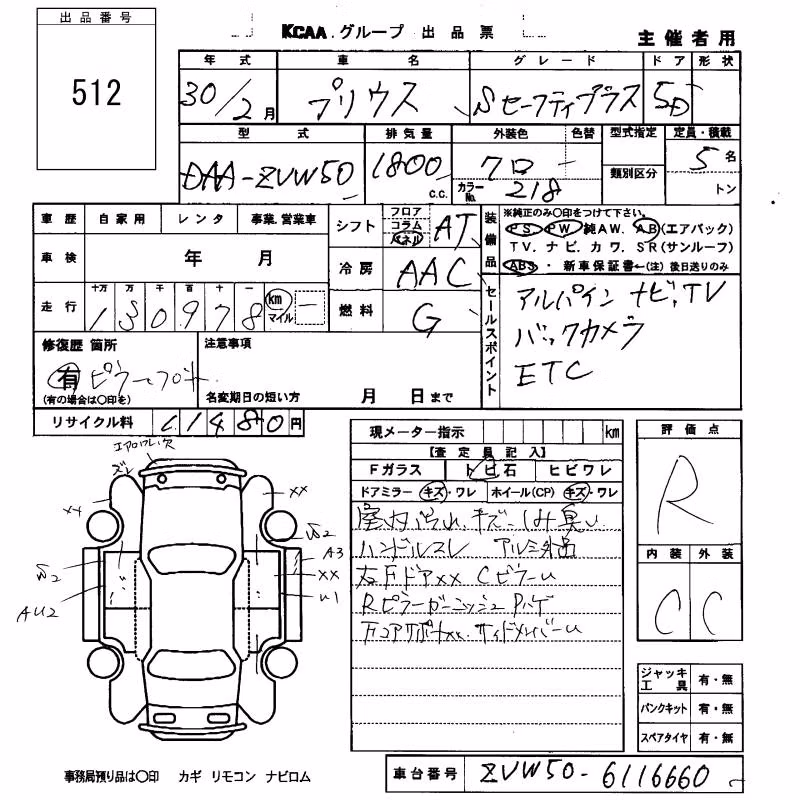 出品番号
512
KCAA.グループ 出品票
主催者用
年式 車名 グレード ドア 形状
30/2月 プリウス Sセーフティプラス 5D
型式 排気量 外装色 色替 型式指定 定員・積載
DAA-ZVW50 1800 c.c. クロ - 類別区分 5名
カラーNo. 218 トン
車歴 自家用 レンタ 事業.営業車
シフト フロア コラム パネル AT
車検 年 月
冷房 AAC
走行 十万 万 千 百 十 一
130978 km マイル -
燃料 G
装備品
※純正のみ〇印をつけて下さい。
PS. PW. 純AW. AB(エアバック)
TV. ナビ. カワ. SR(サンルーフ)
ABS・ 新車保証書←(注) 後日送りのみ
セールスポイント
アルパイン ナビ,TV
バックカメラ
ETC
修復歴 箇所
有 ピラー
(有の場合は〇印を)
注意事項
名変期日の短い方 月 日まで
リサイクル料 11480円
現メーター指示 km
【査定員記入】
Fガラス トビ石 ヒビワレ
ドアミラー キズ・ワレ ホイール(CP) キズ・ワレ
室内汚れ.キズ.シミ臭い
ハンドルスレ アルミ外品
右Fドアxx CピラーU
Rピラーガーニッシュハゲ
FコアサポートXX. サイドメンバーU
エアロワレ.欠
ズレ
XX
XX
W2
W2
A3
XX
U1
AU2
評価点
R
内装 外装
C C
ジャッキ工具 有・無
パンクキット 有・無
スペアタイヤ 有・無
事務局預り品は〇印 カギ リモコン ナビロム
車台番号 ZVW50-6116660